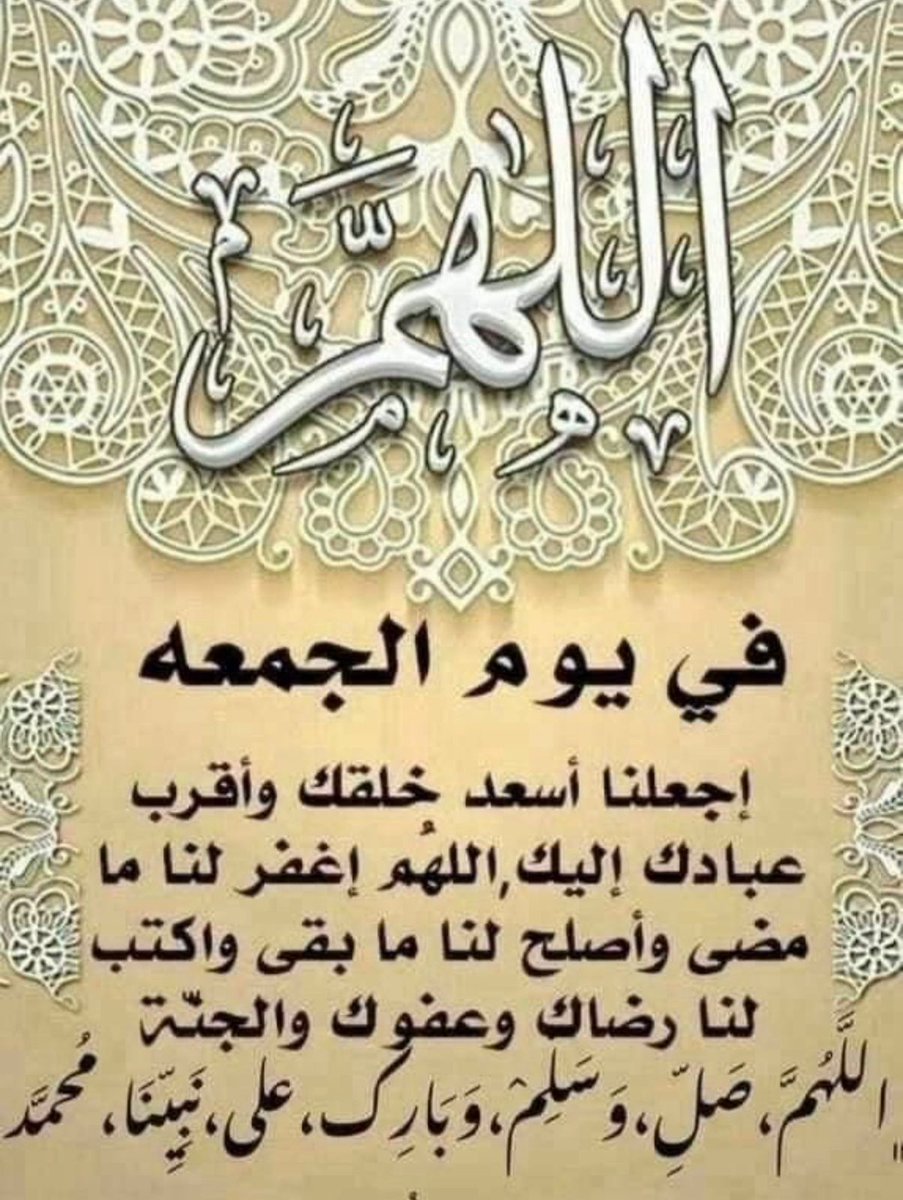 اللهم
في يوم الجمعه
إجعلنا أسعد خلقك وأقرب
عبادك إليك,اللهُم إغفر لنا ما
مضى وأصلح لنا ما بقى واكتب
لنا رضاك وعفوك والجنّة
اللَّهُمَّ، صَلِّ، وَسَلِمْ، وَبَارِك، على، نَبِيِّنَا، مُحمَّد